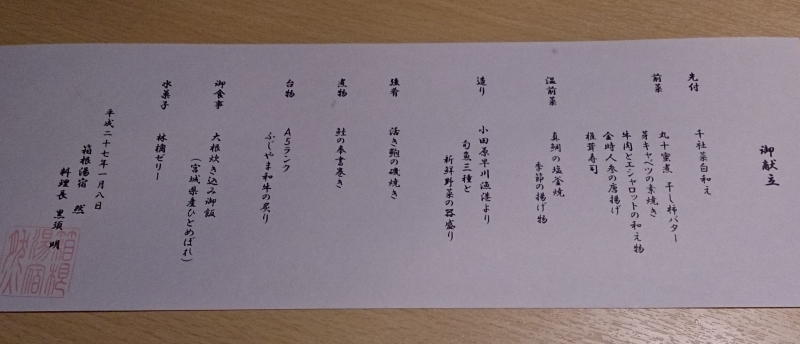 御献立
先付 千社菜白和え
前菜 丸十蜜煮 干し柿バター
芽キャベツの素焼き
牛肉とエシャロットの和え物
金時人参の唐揚げ
椎茸寿司
温前菜 真鯛の塩釜焼
季節の揚げ物
造り 小田原早川漁港より
旬魚三種と
新鮮野菜の器盛り
強肴 活き鮑の磯焼き
煮物 鮭の奉書巻き
台物 A5ランク
ふじやま和牛の炙り
御食事 大根炊き込み御飯
(宮城県産ひとめぼれ)
水菓子 林檎ゼリー
平成二十七年一月八日
箱根湯宿 然
料理長 黒須 明
箱根
湯宿
然